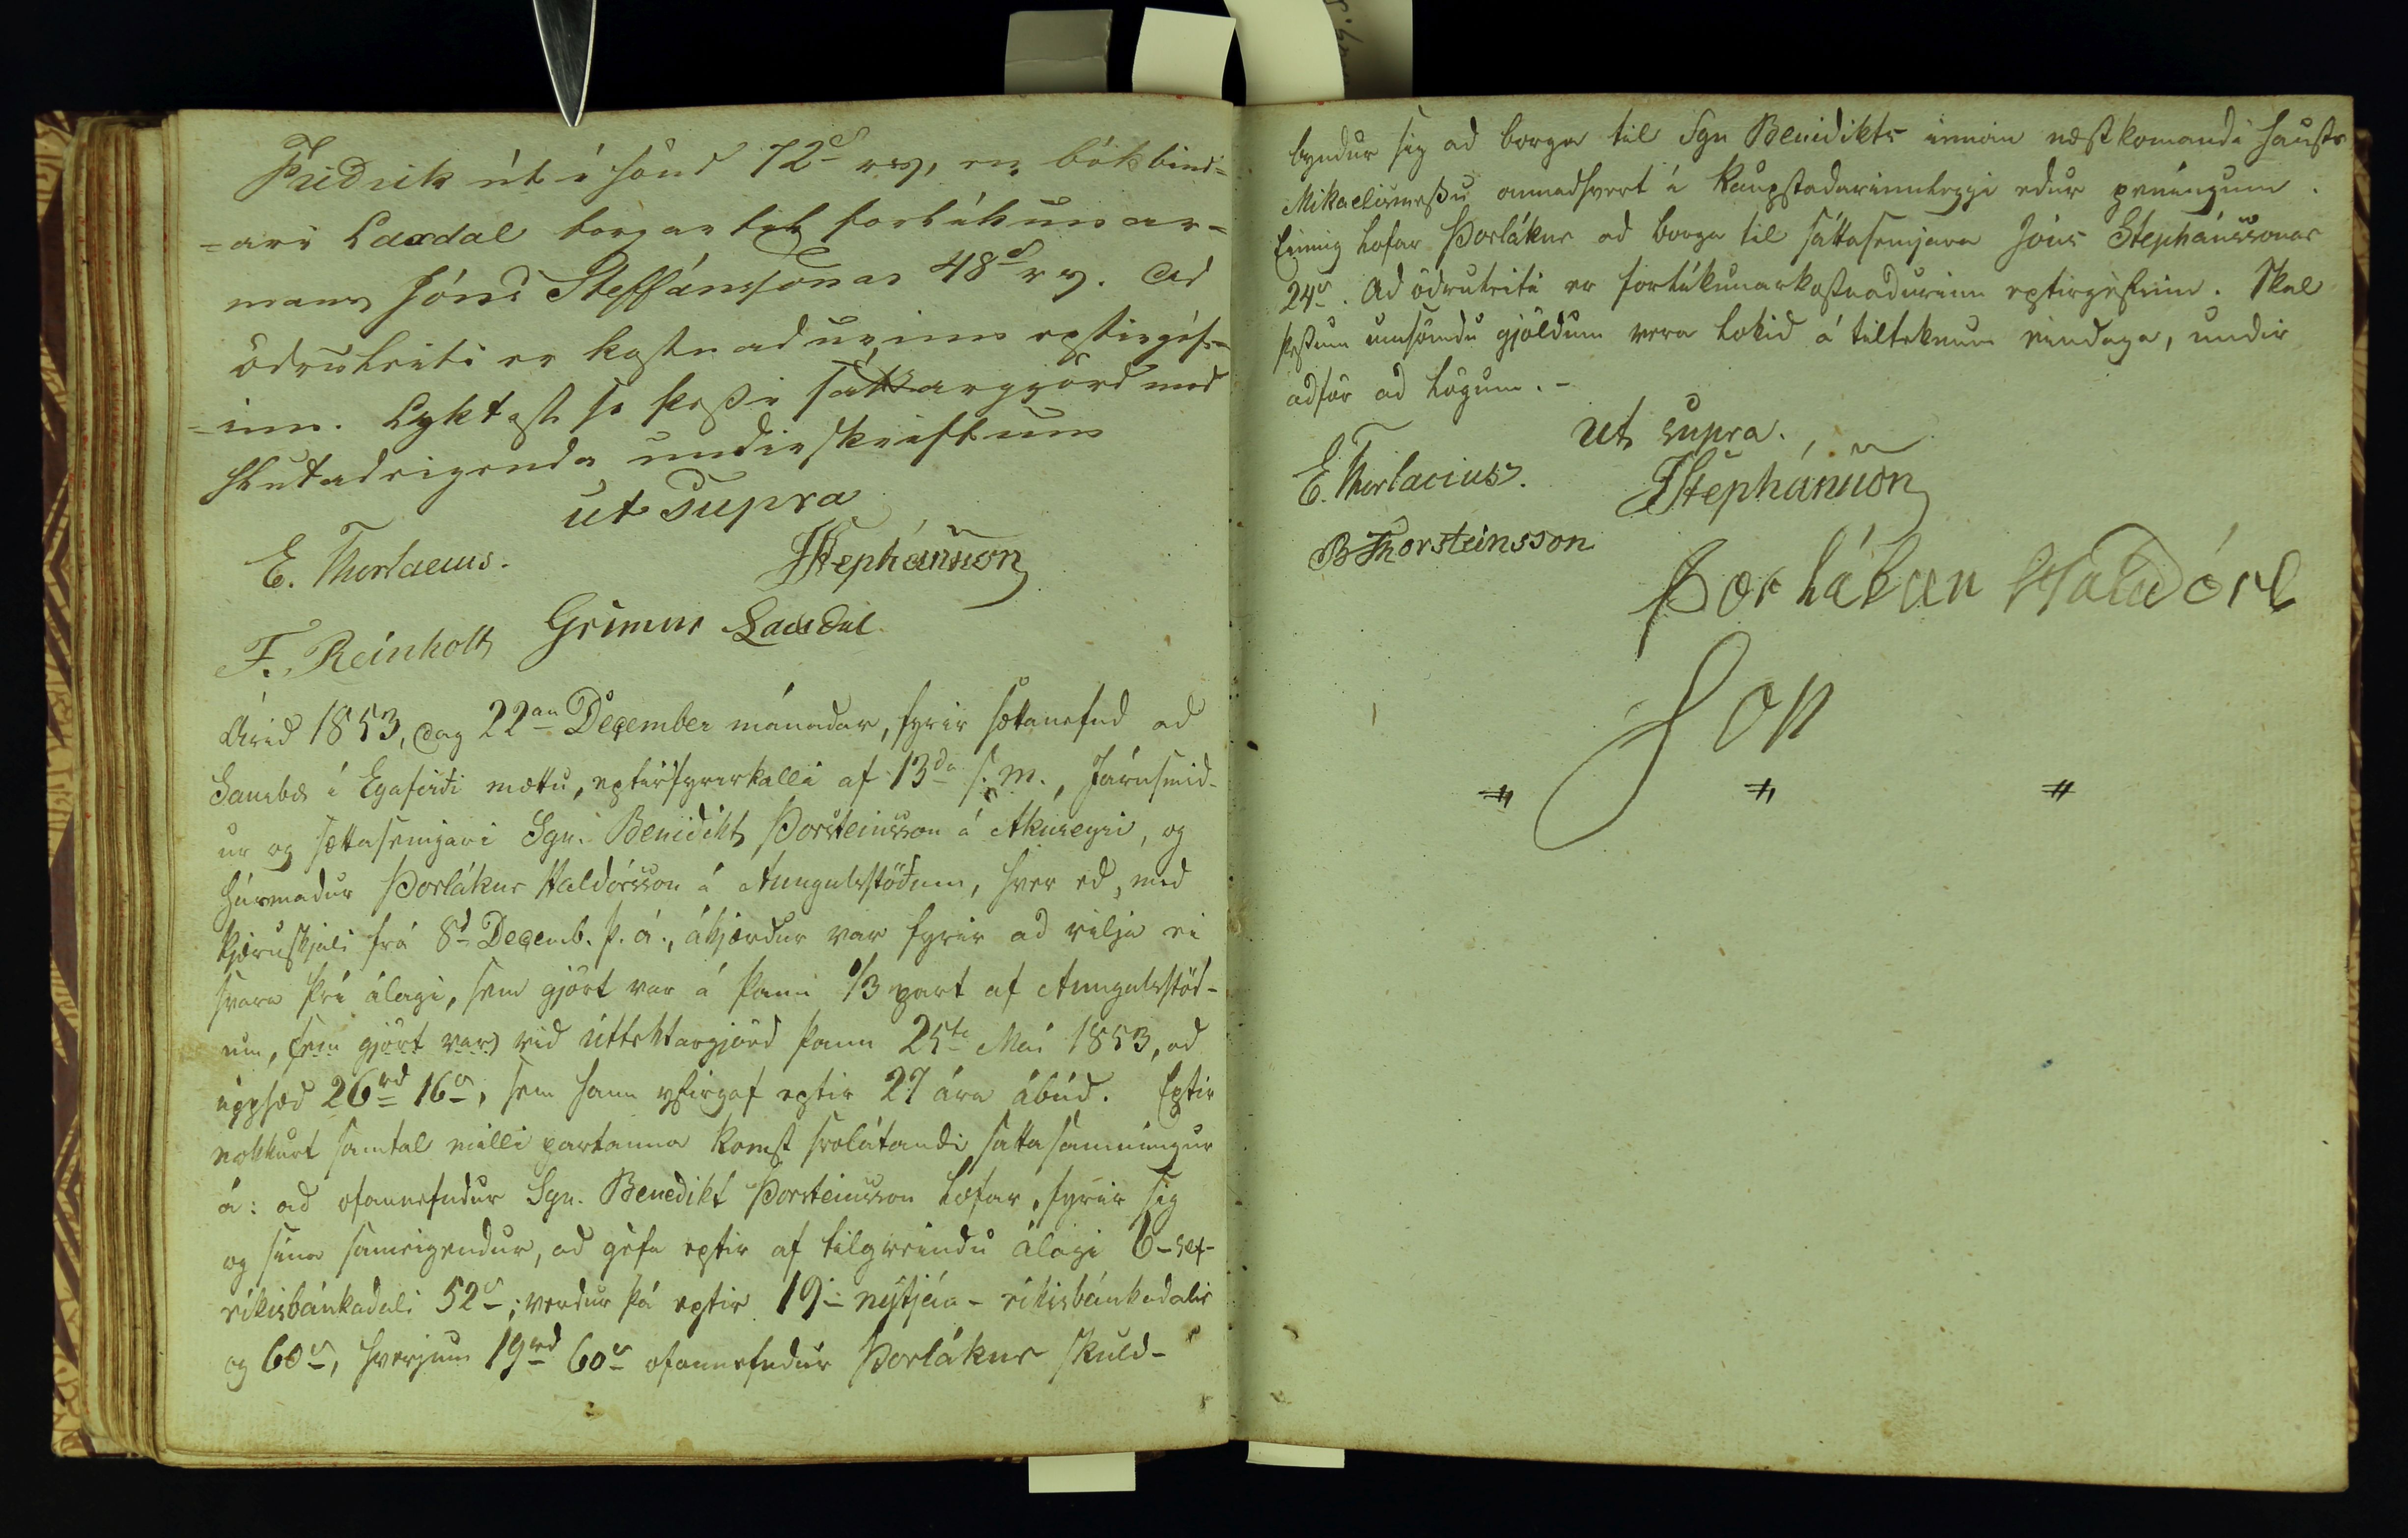 Fridrik út í hönd 72s rm, en bókbind=
=ari Laxdal borgar til forlíkunar=
manns Jóns Steffánssonar 48s rm. Ad
ödruleiti er kostnadurinn eptirgéf=
=inn. Lyktast so þessi sáttargjörd med
hlutadeigenda undirskriftum
ut supra
E. Thorlacius.
JStephánsson
F. Reinholt Grímur Laxdal
Árid 1853, dag 22an December mánadar, fyrir sættanefnd ad
Saurbæ í Eyafirdi mættu, eptir fyrirkalli af 13da s. m., Járnsmid-
ur og sættasemjari Sgr. Benidikt Þorsteinsson á Akureyri, og
húsmadur Þorlákur Haldórsson á Aungulsstödum, hver ed, med
kjæruskjali frá 8d Decemb. þ. á., ákjærdur var fyrir ad vilja ei
svara því álagi, sem gjört var á þann 1/3 part af Aungulsstöd-
um, (sem gjört var) vid úttektargjörd þann 25ta Mai 1853, ad
upphæd 26rd 16s, sem hann yfirgaf eptir 27 ára ábúd. Eptir
nokkurt samtal milli partanna komst svolátandi sáttasamningur
á: ad ofannefndur Sgr. Benedikt Þorsteinsson lofar, fyrir sig
og sína sameigendur, ad géfa eptir af tilgreindu álagi 6-sex-
ríkisbánkadali 52s; verdur þá eptir 19- nýtjáa- ríkisbánkadalir
og 60s, hverjum 19rd 60s ofannefndur Þorlákur skuld-
byndur sig ad borga til Sgr Benidikts innan næstkomandi hausts
Mikaelismessu annadhvert í Kaupstadarinnleggi edur peníngum.
Einnig lofar Þorlákur ad borga til sáttasemjara Jóns Stephánssonar
24s. Ad ödruleiti er forlíkunarkostnadurinn eptirgéfinn. Skal
þessum umsömdu gjöldum vera lokid á tilteknum eindaga, undir
adför ad lögum. -
ut supra.
E. Thorlacius.
JStephánsson
B Thorsteinsson
Þorlákur Haldórs
Son